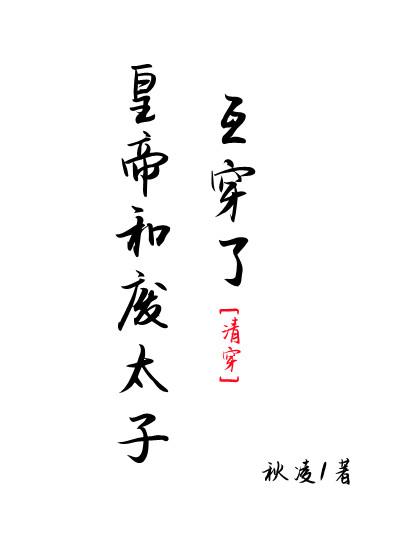 皇帝和废太子
互穿了
[清穿]
秋凌/著